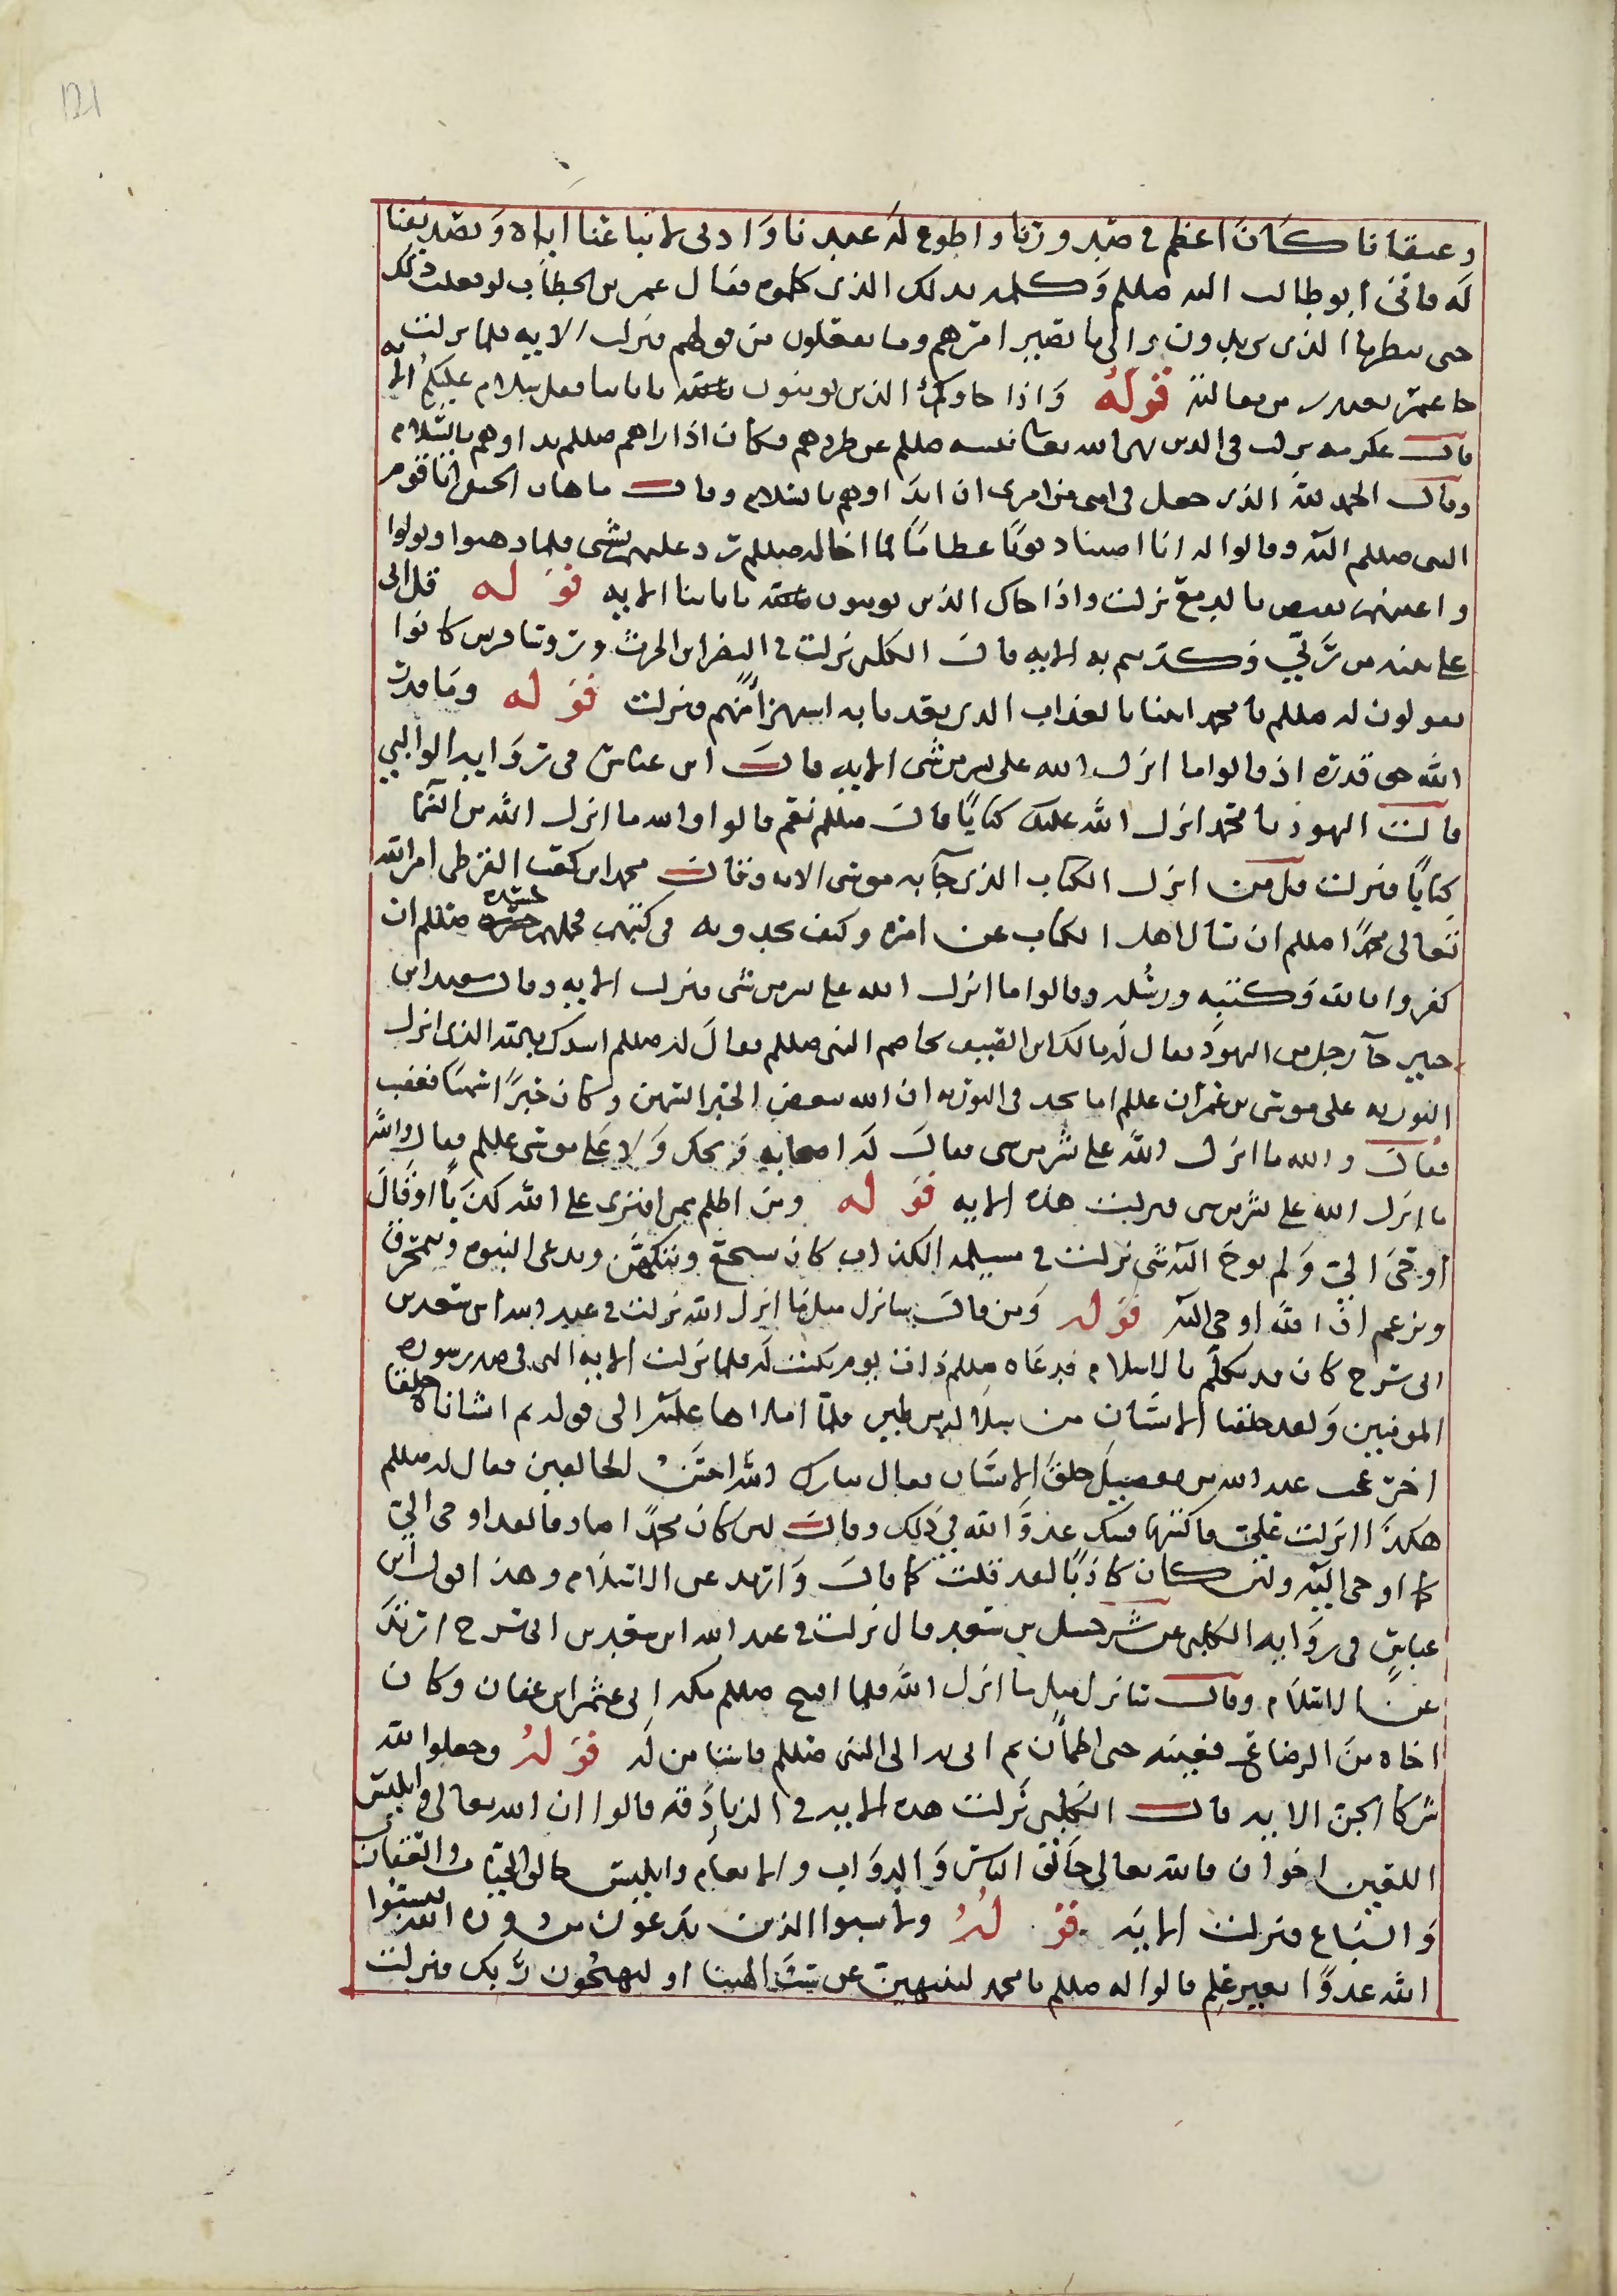 121
وعتقانا كان اعظم في صدورنا واطوع له عندنا وادنى لاتباعنا اياه وتصديقنا
له فاتى ابو طالب اليه صللم وكلمه بذلك الذي كلموه فقال عمر بن الخطاب لو فعلت ذلك
حتى ننظر ما الذي يريدون والى ما تصير امرهم وما يعقلون من قولهم فنزلت الايه فلما نزلت
جا عمر يعتذر من مقالته قوله واذا جاوك الذين يومنون باياتنا فقل سلام عليكم الايه
قال عكرمه نزلت في الذين نهى الله تعالى نبيه صللم عن طردهم فكان اذا راهم صللم بداوهم بالسلام
وقال الحمد لله الذي جعل في امتي من امرني ان ابداوهم بالسلام وقال ماهان الحنفي اتا قوم
النبي صللم اليه وقالوا له انا اصبنا ذنوبا عظاما فما اخاله صللم رد عليهم بشي فلما ذهبوا وتولوا
نزلت واذا جاك الذين يومنون باياتنا الايه قوله قل اني
على بينه من ربي وكذبتم به الايه قال الكلبي نزلت في النضر ابن الحرث وروسا قريش كانوا
يقولون له صللم يا محمد ايتنا بالعذاب الذي تعدنا به استهزا منهم فنزلت قوله وما قدروا
الله حق قدره اذ قالوا ما انزل الله على بشر من شي الايه قال ابن عباس في روايه الوالبي
قالت اليهود يا محمد انزل الله عليك كتابا قال صللم نعم قالوا والله ما انزل الله من السما
كتابا فنزلت قل من انزل الكتاب الذي جآ به موسى الايه وقال محمد ابن كعب القرظي امر الله
تعالى محمدا صللم ان يسال اهل الكتاب عن امره وكيف يجدونه في كتبهم فحملهم حسد صللم ان
كفروا بالله وكتبه ورسله وقالوا ما انزل الله على بشر من شي فنزلت الايه وقال سعيد ابن
جبير جآ رجل من اليهود يقال له مالك ابن الضيف يخاصم النبي صللم فقال له صللم انشدك بالله الذي انزل
التوريه على موسى بن عمران عللم اما تجد في التوريه ان الله يبغض الحبر السمين وكان حبرا سمينا فغضب
فقال والله ما انزل الله على بشر من شي فقال له اصحابه ويحك ولا على موسى عللم فقال والله
ما انزل الله على بشر من شي فنزلت هذه الايه قوله ومن اظلم ممن افترى على الله كذبا او قال
اوحى الي ولم يوح اليه شي نزلت في مسيلمه الكذاب كان يسجع ويتكهن ويدعى النبوه
ويزعم ان الله اوحى اليه قوله ومن قال سانزل مثل ما انزل الله نزلت في عبد الله ابن سعد بن
ابي سرح كان قد تكلم بالاسلام فدعاه صللم ذات يوم يكتب له فلما نزلت الايه التي في صدر سوره
المومنين ولقد خلقنا الانسان من سلاله من طين فلما املاها عليه الى قوله ثم انشاناه خلقا
اخر عجب عبد الله من تفصيل خلق الانسان فقال تبارك الله احسن الخالقين فقال له صللم
هكذا انزلت علي فاكتبها فشك عدو الله في ذلك وقال لين كان محمدا صادقا لقد اوحى الي
كما اوحى اليه ولين كان كاذبا لقد قلت كما قال وارتد عن الاسلام وهذا قول ابن
عباس في روايه الكلبي عن شرحبيل بن سعد قال نزلت في عبد الله ابن سعد بن ابي سرح ارتد
عن الاسلام وقال سانزل مثل ما انزل الله فلما افتتح صللم مكه اتى عثمان ابن عفان وكان
اخاه من الرضاعه فغيبه حتى اطمان ثم اتى به الى النبي صللم فاستامن له قوله وجعلوا لله
شركا الجن الايه قال الكلبي نزلت هذه الايه في الزنادقه قالوا ان الله تعالى وابليس
اللعين اخوان فالله تعالى خالق الناس والدواب والانعام وابليس خالق الحيات والعقبان
والسباع فنزلت الايه قوله ولا تسبوا الذين يدعون من دون الله فيسبوا
الله عدوا بغير علم قالوا له صللم يا محمد لتنتهين عن سب الهتنا او لنهجون ربك فنزلت